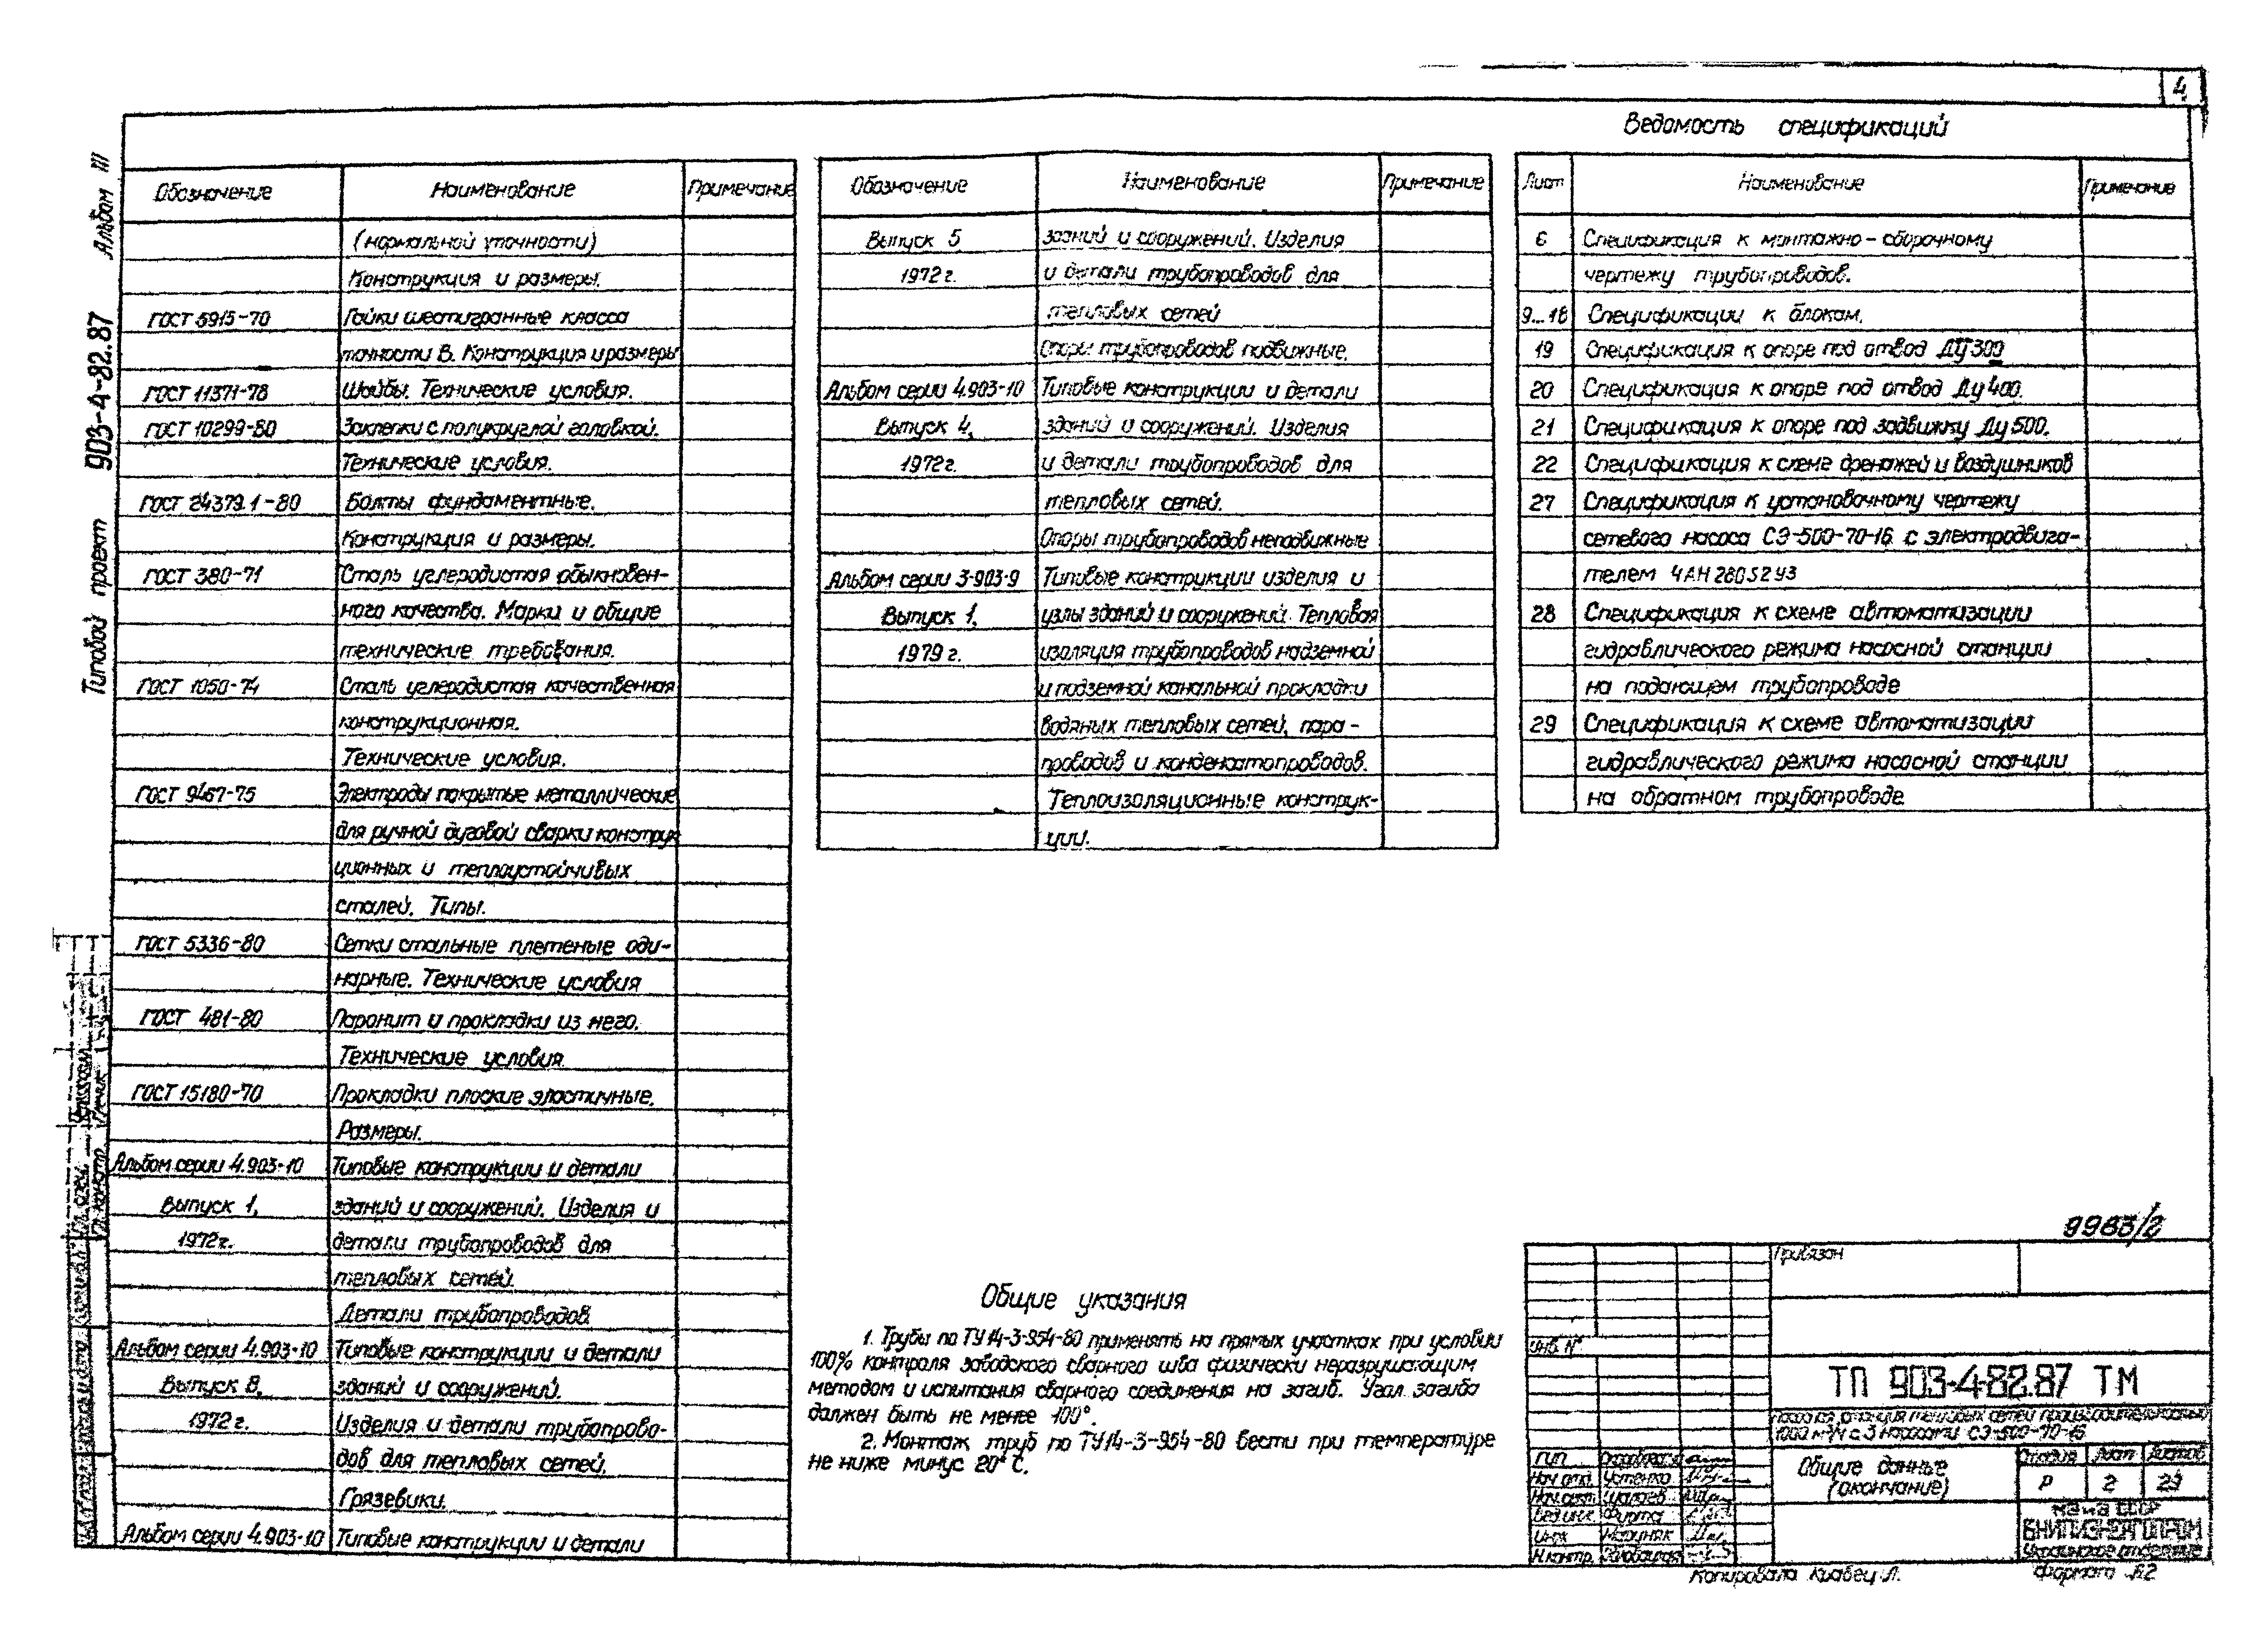 4
Альбом III
903-4-82.87
Типовой проект
Обозначение Наименование Примечание
(нормальной точности)
Конструкция и размеры.
ГОСТ 5915-70 Гайки шестигранные класса
точности В. Конструкция и размеры
ГОСТ 11371-78 Шайбы. Технические условия.
ГОСТ 10299-80 Заклепки с полукруглой головкой.
Технические условия.
ГОСТ 24379.1-80 Болты фундаментные.
Конструкция и размеры.
ГОСТ 380-71 Сталь углеродистая обыкновен-
ного качества. Марки и общие
технические требования.
ГОСТ 1050-74 Сталь углеродистая качественная
конструкционная.
Технические условия.
ГОСТ 9467-75 Электроды покрытые металлические
для ручной дуговой сварки конструк
ционных и теплоустойчивых
сталей. Типы.
ГОСТ 5336-80 Сетки стальные плетеные оди-
нарные. Технические условия
ГОСТ 481-80 Паронит и прокладки из него.
Технические условия.
ГОСТ 15180-70 Прокладки плоские эластичные.
Размеры.
Альбом серии 4.903-10 Типовые конструкции и детали
Выпуск 1, зданий и сооружений. Изделия и
1972г. детали трубопроводов для
тепловых сетей.
Детали трубопроводов.
Альбом серии 4.903-10 Типовые конструкции и детали
Выпуск 8, зданий и сооружений.
1972 г. Изделия и детали трубопрово-
дов для тепловых сетей.
Грязевики.
Альбом серии 4.903-10 Типовые конструкции и детали
Обозначение Наименование Примечание
Выпуск 5 зданий и сооружений. Изделия
1972 г. и детали трубопроводов для
тепловых сетей
Опоры трубопроводов подвижные.
Альбом серии 4.903-10 Типовые конструкции и детали
Выпуск 4, зданий и сооружений. Изделия
1972г. и детали трубопроводов для
тепловых сетей.
Опоры трубопроводов неподвижные
Альбом серии 3-903-9 Типовые конструкции изделия и
Выпуск 1, узлы зданий и сооружений. Тепловая
1979 г. изоляция трубопроводов надземной
и подземной канальной прокладки
водяных тепловых сетей, паро-
проводов и конденсатопроводов.
Теплоизоляционные конструк-
ции.
Ведомость спецификаций
Лист Наименование Примечание
6 Спецификация к монтажно-сборочному
чертежу трубопроводов.
9...18 Спецификации к блокам.
19 Спецификация к опоре под отвод Ду 300
20 Спецификация к опоре под отвод Ду 400.
21 Спецификация к опоре под задвижку Ду 500.
22 Спецификация к схеме дренажей и воздушников
27 Спецификация к установочному чертежу
сетевого насоса СЭ-500-70-16 с электродвига-
телем 4АН280S2У3
28 Спецификация к схеме автоматизации
гидравлического режима насосной станции
на подающем трубопроводе
29 Спецификация к схеме автоматизации
гидравлического режима насосной станции
на обратном трубопроводе
Общие указания
1. Трубы по ТУ14-3-954-80 применять на прямых участках при условии
100% контроля заводского сварного шва физически неразрушающим
методом и испытания сварного соединения на загиб. Угол загиба
должен быть не менее 100°.
2. Монтаж труб по ТУ14-3-954-80 вести при температуре
не ниже минус 20°С.
9983/2
Привязан
Инв. №
ТП 903-4-82.87 ТМ
Насосная станция тепловых сетей производительностью
1000 м³/ч с 3 насосами СЭ-500-70-16
Общие данные
(окончание)
Стадия Лист Листов
Р 2 29
ГИП
Нач. отд. Устенко
Вед. инж. Фирта
Инж. Мариняк
Н. контр.
СССР
ВНИПИЭНЕРГОПРОМ
Украинское отделение
Копировала Кравец Л.
Формат А2